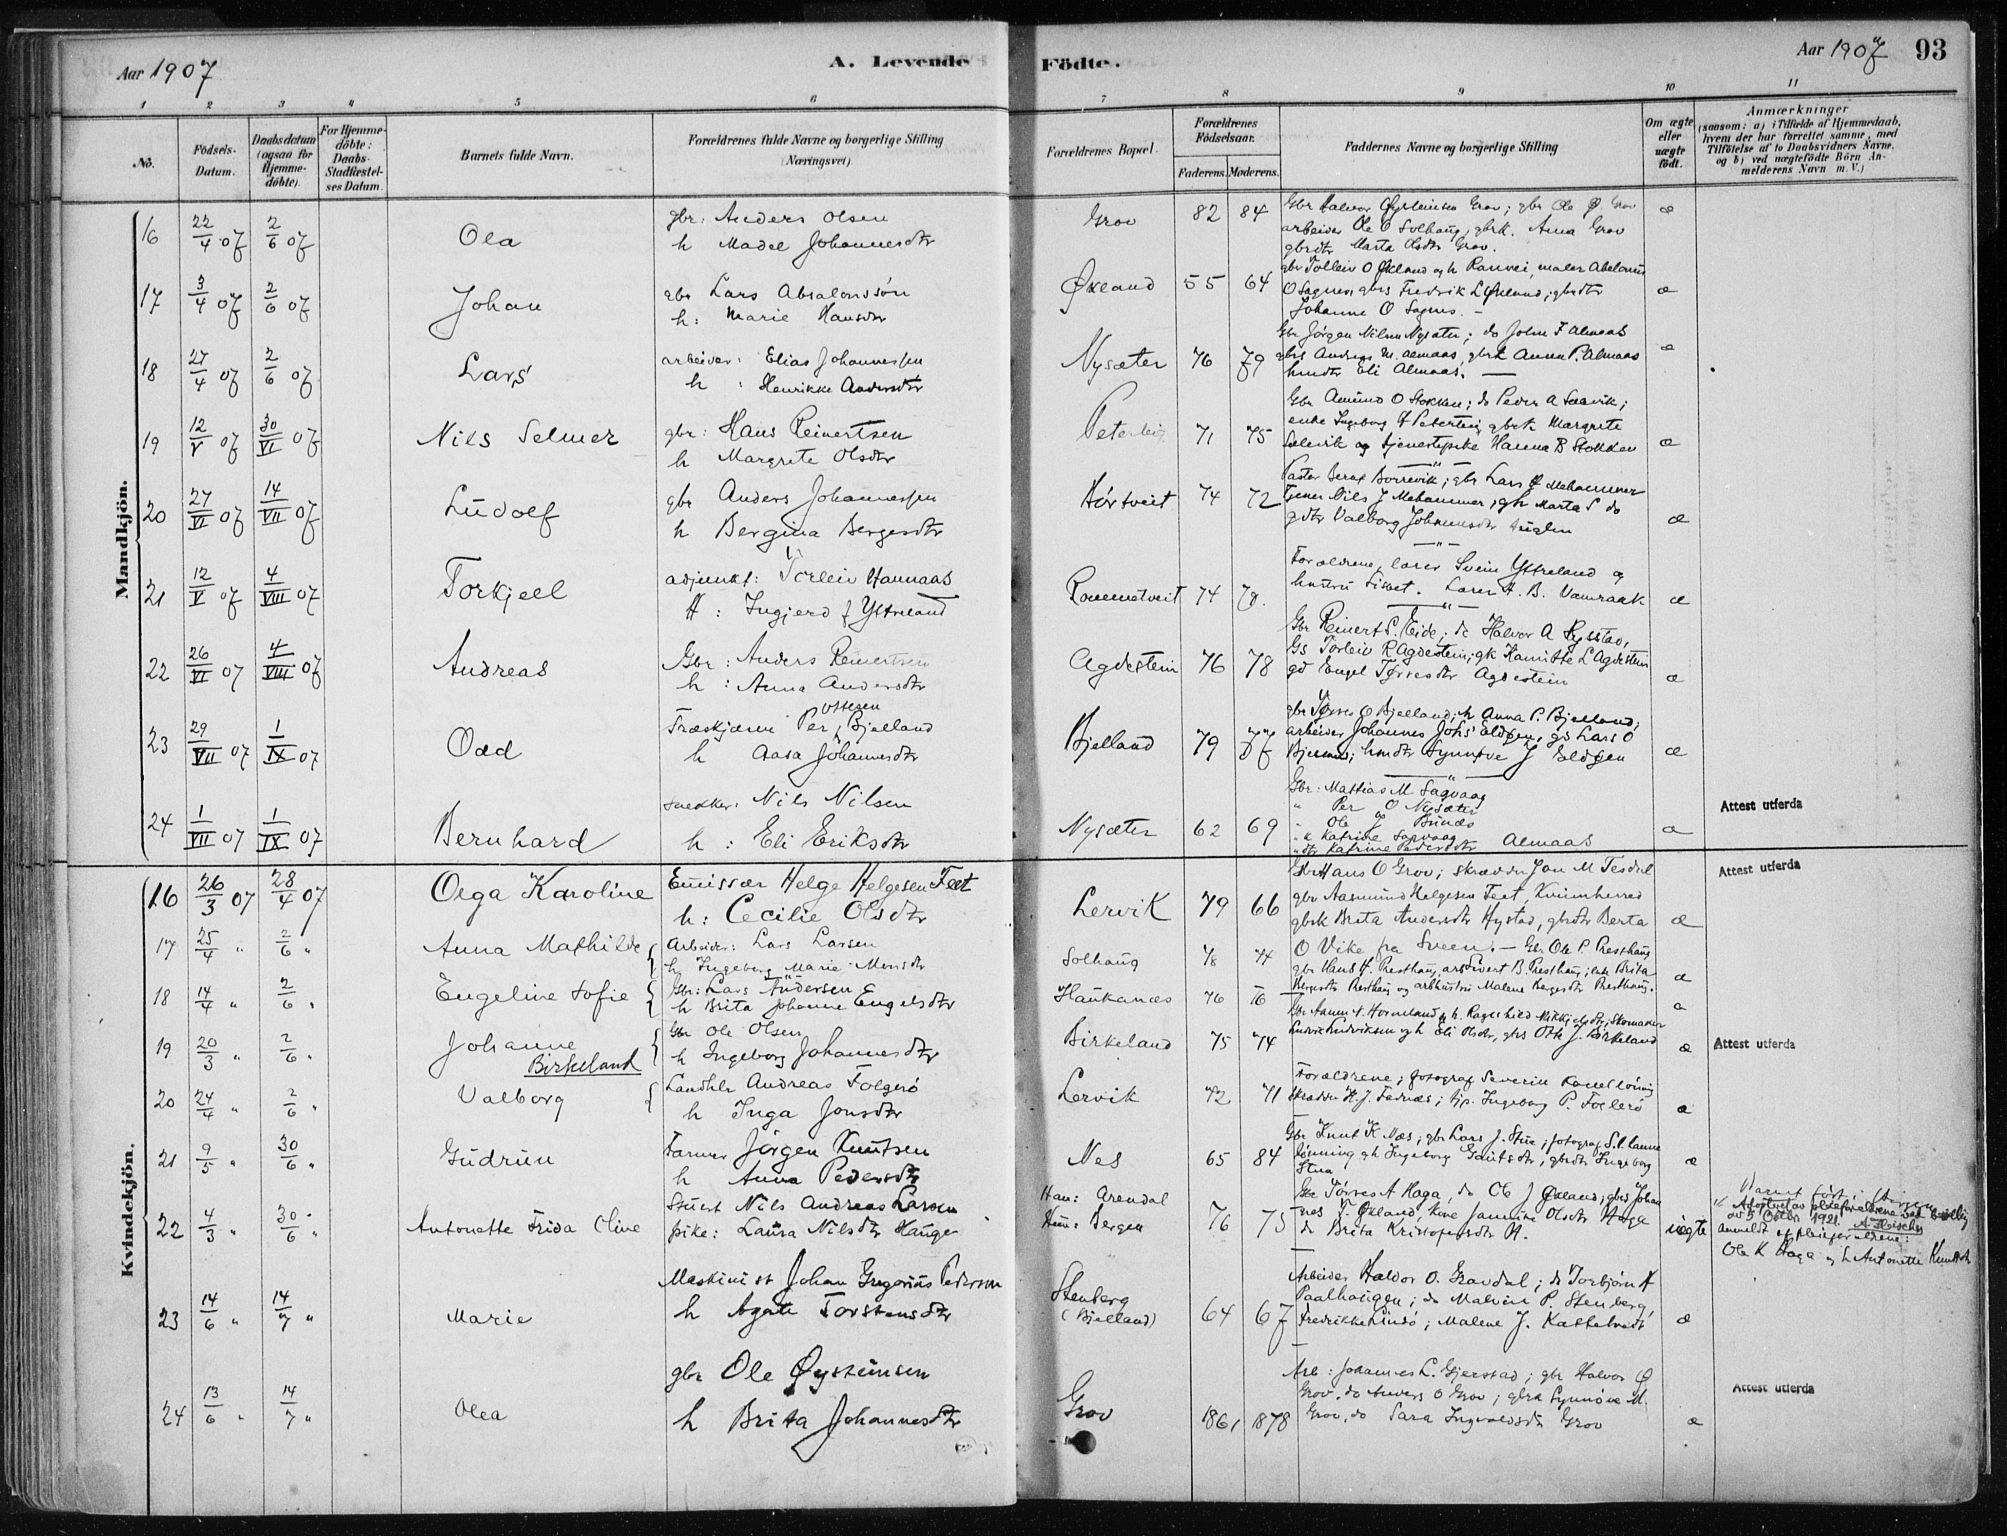 Aar 1907
A. Levende
Födte.
Aar 1907
93
1 2 3 4 5 6 7 8 9 10 11
No.
Födsels-Datum.
Daabsdatum (ogsaa för Hjemmedöbte)
For Hjemmedöbte: Daabs-Stadfæstelses Datum.
Barnets fulde Navn.
Forældrenes fulde Navne og borgerlige Stilling (Næringsvei)
Forældrenes Bopæl.
Forældrenes Födselsaar.
Faderens. Moderens.
Faddernes Navne og borgerlige Stilling
Om ægte eller uægte födt.
Anmærkninger
(saasom: a) i Tilfælde af Hjemmedaab, hvem der har forrettet samme, med Tilföielse af to Daabsvidners Navne, og b) ved uægtefödte Börn Anmelderens Navn m. V.)
Mandkjön.
16 22/4 07 2/6 07 Ola
gbr: Anders Olsen
h Madel Johannesdtr
Grov 82 84
arbeider Ole O Solhaug, gbrk. Anna Grov
gbrdtr Marta Olsdtr Grov.
æ
17 3/4 07 2/6 07 Johan
gbr Lars Absalonssön
h: Marie Hansdtr
Økland 55 64
gbr Tolleiv O Økland og h Ranvei, maler Abelonus
O Sagnes, gbrs Fredrik L Økland, gbrdtr
Johanne O Sagnes. -
æ
18 27/4 07 2/6 07 Lars
arbeider: Elias Johannessen
h: Henrikke Andersdtr
Nysæter 76 79
Gbr Jörgen Nilsen Nysæter; do John F Almaas
gbrs Andreas M. Almaas, gbrk Anna P. Almaas
hmdtr Eli Almaas. —
æ
19 12/V 07 30/VI 07 Nils Selmer
gbr: Hans Reinertsen
h Margrete Olsdtr
Peterteig 71 75
Gbr Amund O Stokken; do Peder A Sælevik;
enke Ingeborg H Peterteig gbrk Margrete
Sælevik og tjenestepike Hanna B Stokken
æ
20 27/VI 07 14/VII 07 Ludolf
gbr Anders Johannessen
h Bergina Bergesdtr
Hörtveit 74 72
Tjener Nils J Mehammer; gk Marta S do
gdtr Valborg Johannesdtr
æ
21 12/V 07 4/VIII 07 Torkjell
adjunkt: Torleiv Hannaas
H: Ingjerd f Ystreland
Rommetveit 74 78.
Forældrene, lærer Svein Ystreland og
hustru Lisbet. Lærer A. B. Vamraak
æ
22 26/VI 07 4/VIII 07 Andreas
Gbr: Anders Reinertsen
h: Anna Andersdtr
Agdestein 76 78
Gbr Reinert S. Eide; do Halvor A Rysstad,
Gs Torleiv R Agdestein; gk Hamitte L Agdestein
gd Engel Tørresdtr Agdestein
æ
23 29/VII 07 1/IX 07 Odd
Træskjærer Per Ottesen Bjelland
h Aasa Johannesdtr
Bjelland 79 77
gbr Tørres O Bjelland; h Anna P. Bjelland;
arbeider Johannes Johs' Eldøen, gs Lars O
Bjelland; hmdtr Synnøve J Eldøen
æ
24 1/VII 07 1/IX 07 Bernhard
snedker: Nils Nilsen
h: Eli Eriksdtr
Nysæter 62 69
Gbr: Mathias M Sagvaag
" Per O Nysæter
" Ole J Bunæs
" k Katrine Sagvaag
" dtr Katrine Pedersdtr Almaas
æ
Attest utferda
Kvindekjön.
16 26/3 07 28/4 07 Olga Karoline
Emissær Helge Helgesen Feet
h: Cecilie Olsdtr
Lervik 79 66
Gbr Hans O Grov; skrædder Jon M Tesdal
gbr Aasmund Helgesen Feet, Kvinnherred
gbrk Brita Andersdtr Hystad, gbrdtr Berta
O Vike fra Sveen. —
æ
Attest utferda
17 25/4 " 2/6 " Anna Mathilde
Arbeider: Lars Larsen
h Ingeborg Marie Monsdtr
Solhaug 78 74
Gbr Ole P. Presthaug
gbr Hans H. Presthaug, arb Sivert B. Presthaug; enke Brita
Bergesdtr Presthaug og arbhustru Malene Bergesdtr Presthaug.
æ
18 14/4 " 2/6 " Engeline Sofie
Gbr: Lars Andersen
h Brita Johanne Engelsdtr
Haukanæs 76 76
æ
19 20/3 " 2/6 " Johanne
Birkeland
Gbr Ole Olsen
h Ingeborg Johannesdtr
Birkeland 75 74
Ludvik Ludviksen og h Eli Olsdtr, gbrs Otto J. Birkeland
æ
Attest utferda
20 24/4 " 2/6 " Valborg
Landhlr Andreas Folgerö
h Inga Jonsdtr
Lervik 72 71
Forældrene; fotograf Severin
skrædder H. J. Fednæs; tjp. Ingeborg P. Folgerö
æ
21 9/5 " 30/6 " Gudrun
Farmer Jörgen Knutsen
h Anna Pedersdtr
Nes 65 84
Gbr Knut K Næs; gbr Lars J. Stue; fotograf S. Sanne
Lønning gk Ingeborg Gautsdtr, gbrdtr Ingeborg
Stua
æ
22 4/3 " 30/6 " Antonette Frida Olive
Stuert Nils Andreas Larsen
pike: Laura Nilsdtr Hauge
Han: Arendal
Hun: Bergen
76 75
Gbr Tørres A Haga, do Ole J Økland; gbrs Johannes T. Økland, kone Jannine Olsdtr Haga
do Brita Kristofersdtr H.
uægte
av 5 Oktbr. 1921.
anmeldt af pleieforældrene:
Ole K Haga og h Antonette Knutsdtr
23 14/6 " 14/7 " Marie
Maskinist Johan Gregorius Pederson
h Agate Torstensdtr
Stenberg
(Bjelland) 64 67
Arbeider Haldor O. Grovdal; do Torbjørn A
Paalhaugen; do Malvin P. Stenberg,
Fredrikke Lindö; Malene J. Kattetvedt
æ
24 13/6 " 14/7 " Olea
gbr Ole Øysteinsen
h Brita Johannesdtr
Grov 1861 1878
Arb: Johannes L. Gjerstad; gbr Halvor Ø
Grov, do Anders O Grov; gbrk Synnøve M.
Grov, do Sara Ingvaldsdtr Grov
æ
Attest utferda